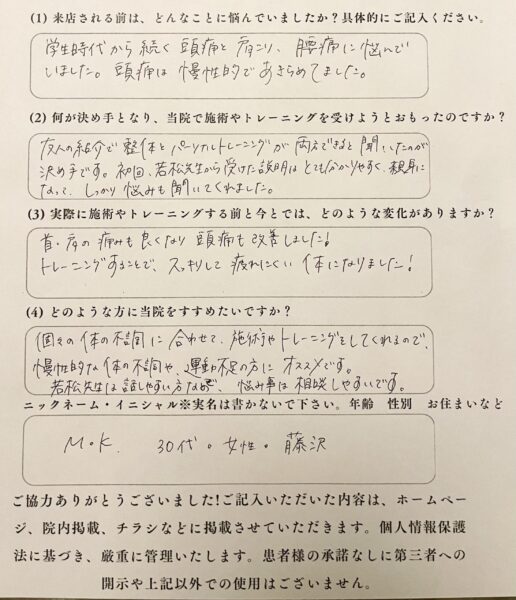 (1) 来店される前は、どんなことに悩んでいましたか?具体的にご記入ください。
学生時代から続く頭痛と肩こり、腰痛に悩んで
いました。頭痛は慢性的であきらめてました。
(2) 何が決め手となり、当院で施術やトレーニングを受けようとおもったのですか?
友人の紹介で整体とパーソナルトレーニングが両方できると聞いたのが
決め手です。初回、若松先生から受けた説明はとても分かりやすく、親身に
なって、しっかり悩みも聞いてくれました。
(3) 実際に施術やトレーニングする前と今とでは、どのような変化がありますか?
首・肩の痛みも良くなり頭痛も改善しました!
トレーニングすることで、スッキリして疲れにくい体になりました!
(4) どのような方に当院をすすめたいですか?
個々の体の不調に合わせて、施術やトレーニングをしてくれるので、
慢性的な体の不調や、運動不足の方にオススメです。
若松先生は話しやすい方なので、悩み事は相談しやすいです。
ニックネーム・イニシャル※実名は書かないで下さい。年齢 性別 お住まいなど
M・K. 30代。女性。藤沢
ご協力ありがとうございました!ご記入いただいた内容は、ホームペー
ジ、院内掲載、チラシなどに掲載させていただきます。個人情報保護
法に基づき、厳重に管理いたします。患者様の承諾なしに第三者への
開示や上記以外での使用はございません。